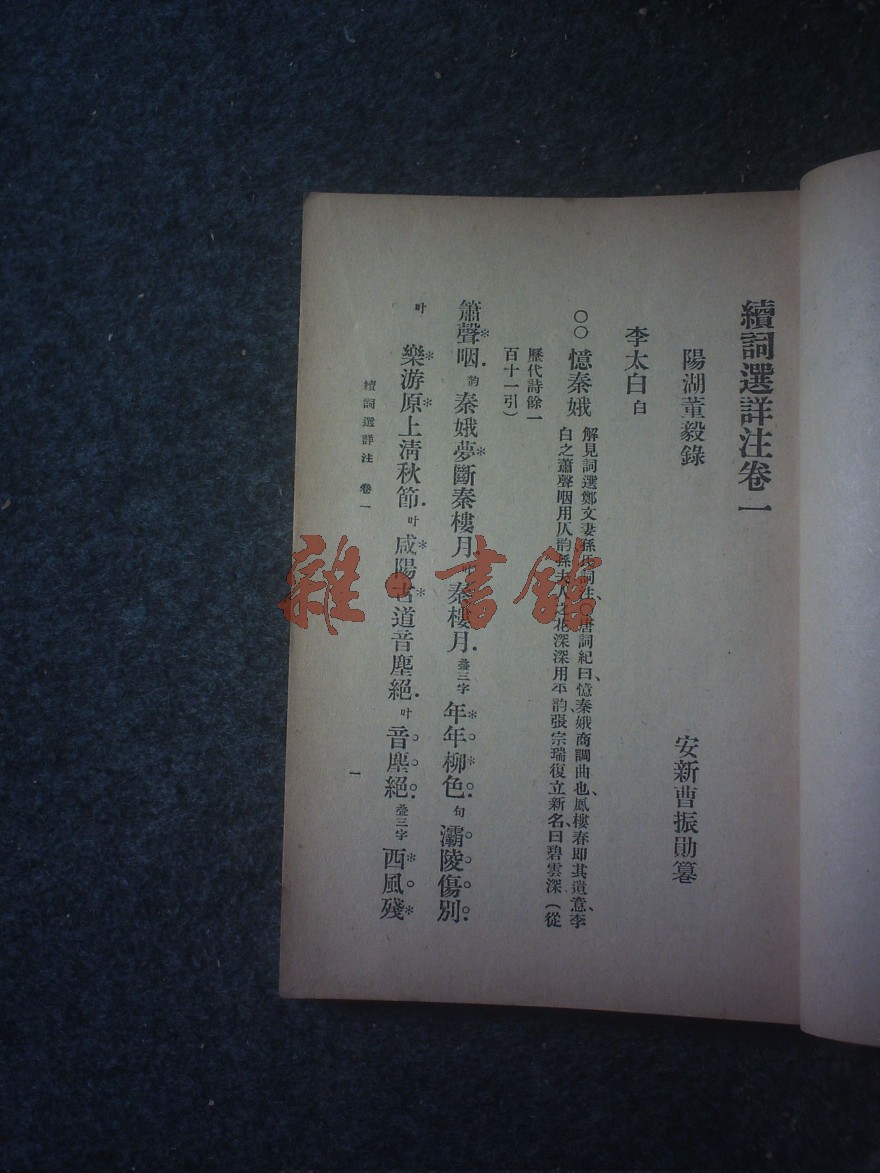 續詞選詳注卷一
陽湖董毅錄
安新曹振勛纂
李太白 白
○○憶秦娥
解見詞選鄭文妻孫氏詞注、唐詞紀曰、憶秦娥商調曲也、鳳樓春即其遺意、李
白之蕭聲咽用仄韵、孫夫人之花深深用平韵、張宗瑞復立新名、曰碧雲深(從
歷代詩餘一
百十一引)
簫聲咽.韵 秦娥夢斷秦樓月.叶 秦樓月.疊三字 年年柳色.句 灞陵傷別.
叶 樂游原上清秋節.叶 咸陽古道音塵絕.叶 音塵絕.疊三字 西風殘
續詞選詳注 卷一
一
雜·書館